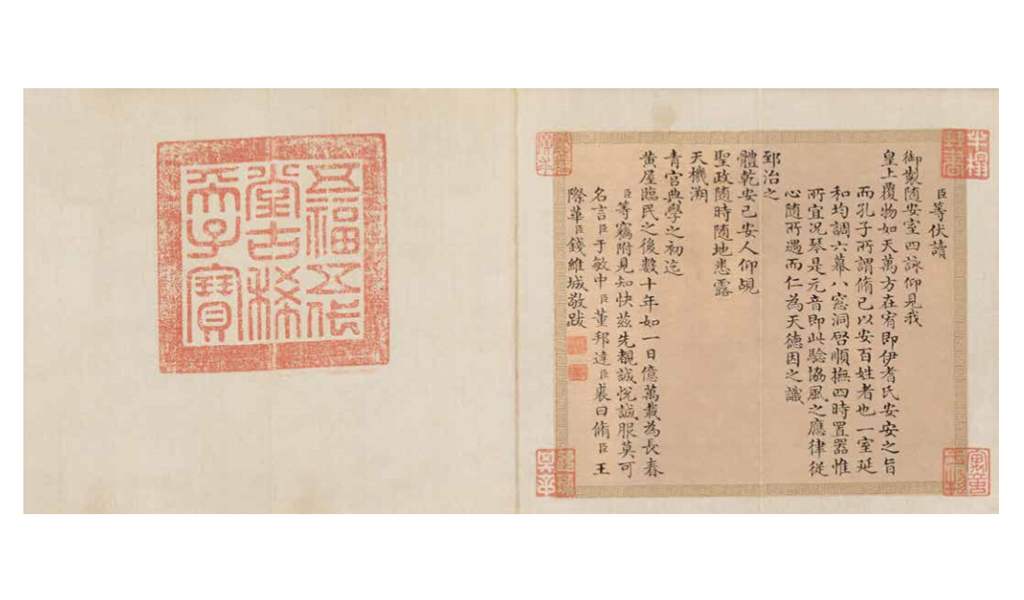 臣等伏讀
御製隨安室四詠仰見我
皇上覆物如天萬方在宥即伊耆氏安安之旨
而孔子所謂脩已以安百姓者也一室延
和均調六幕八窓洞啓順撫四時置器惟
所宜況琴是元音即此驗協風之應律從
心隨所遇而仁為天德因之識
郅治之
體乾安己安人仰覘
聖政隨時隨地悉露
天機溯
青宮典學之初迄
黃屋臨民之後數十年如一日億萬載為長春
臣等竊附見知快茲先覩誠悅誠服莫可
名言臣于敏中臣董邦達臣裘曰脩臣王
際華臣錢維城敬跋
五福五代
堂古稀
天子寶